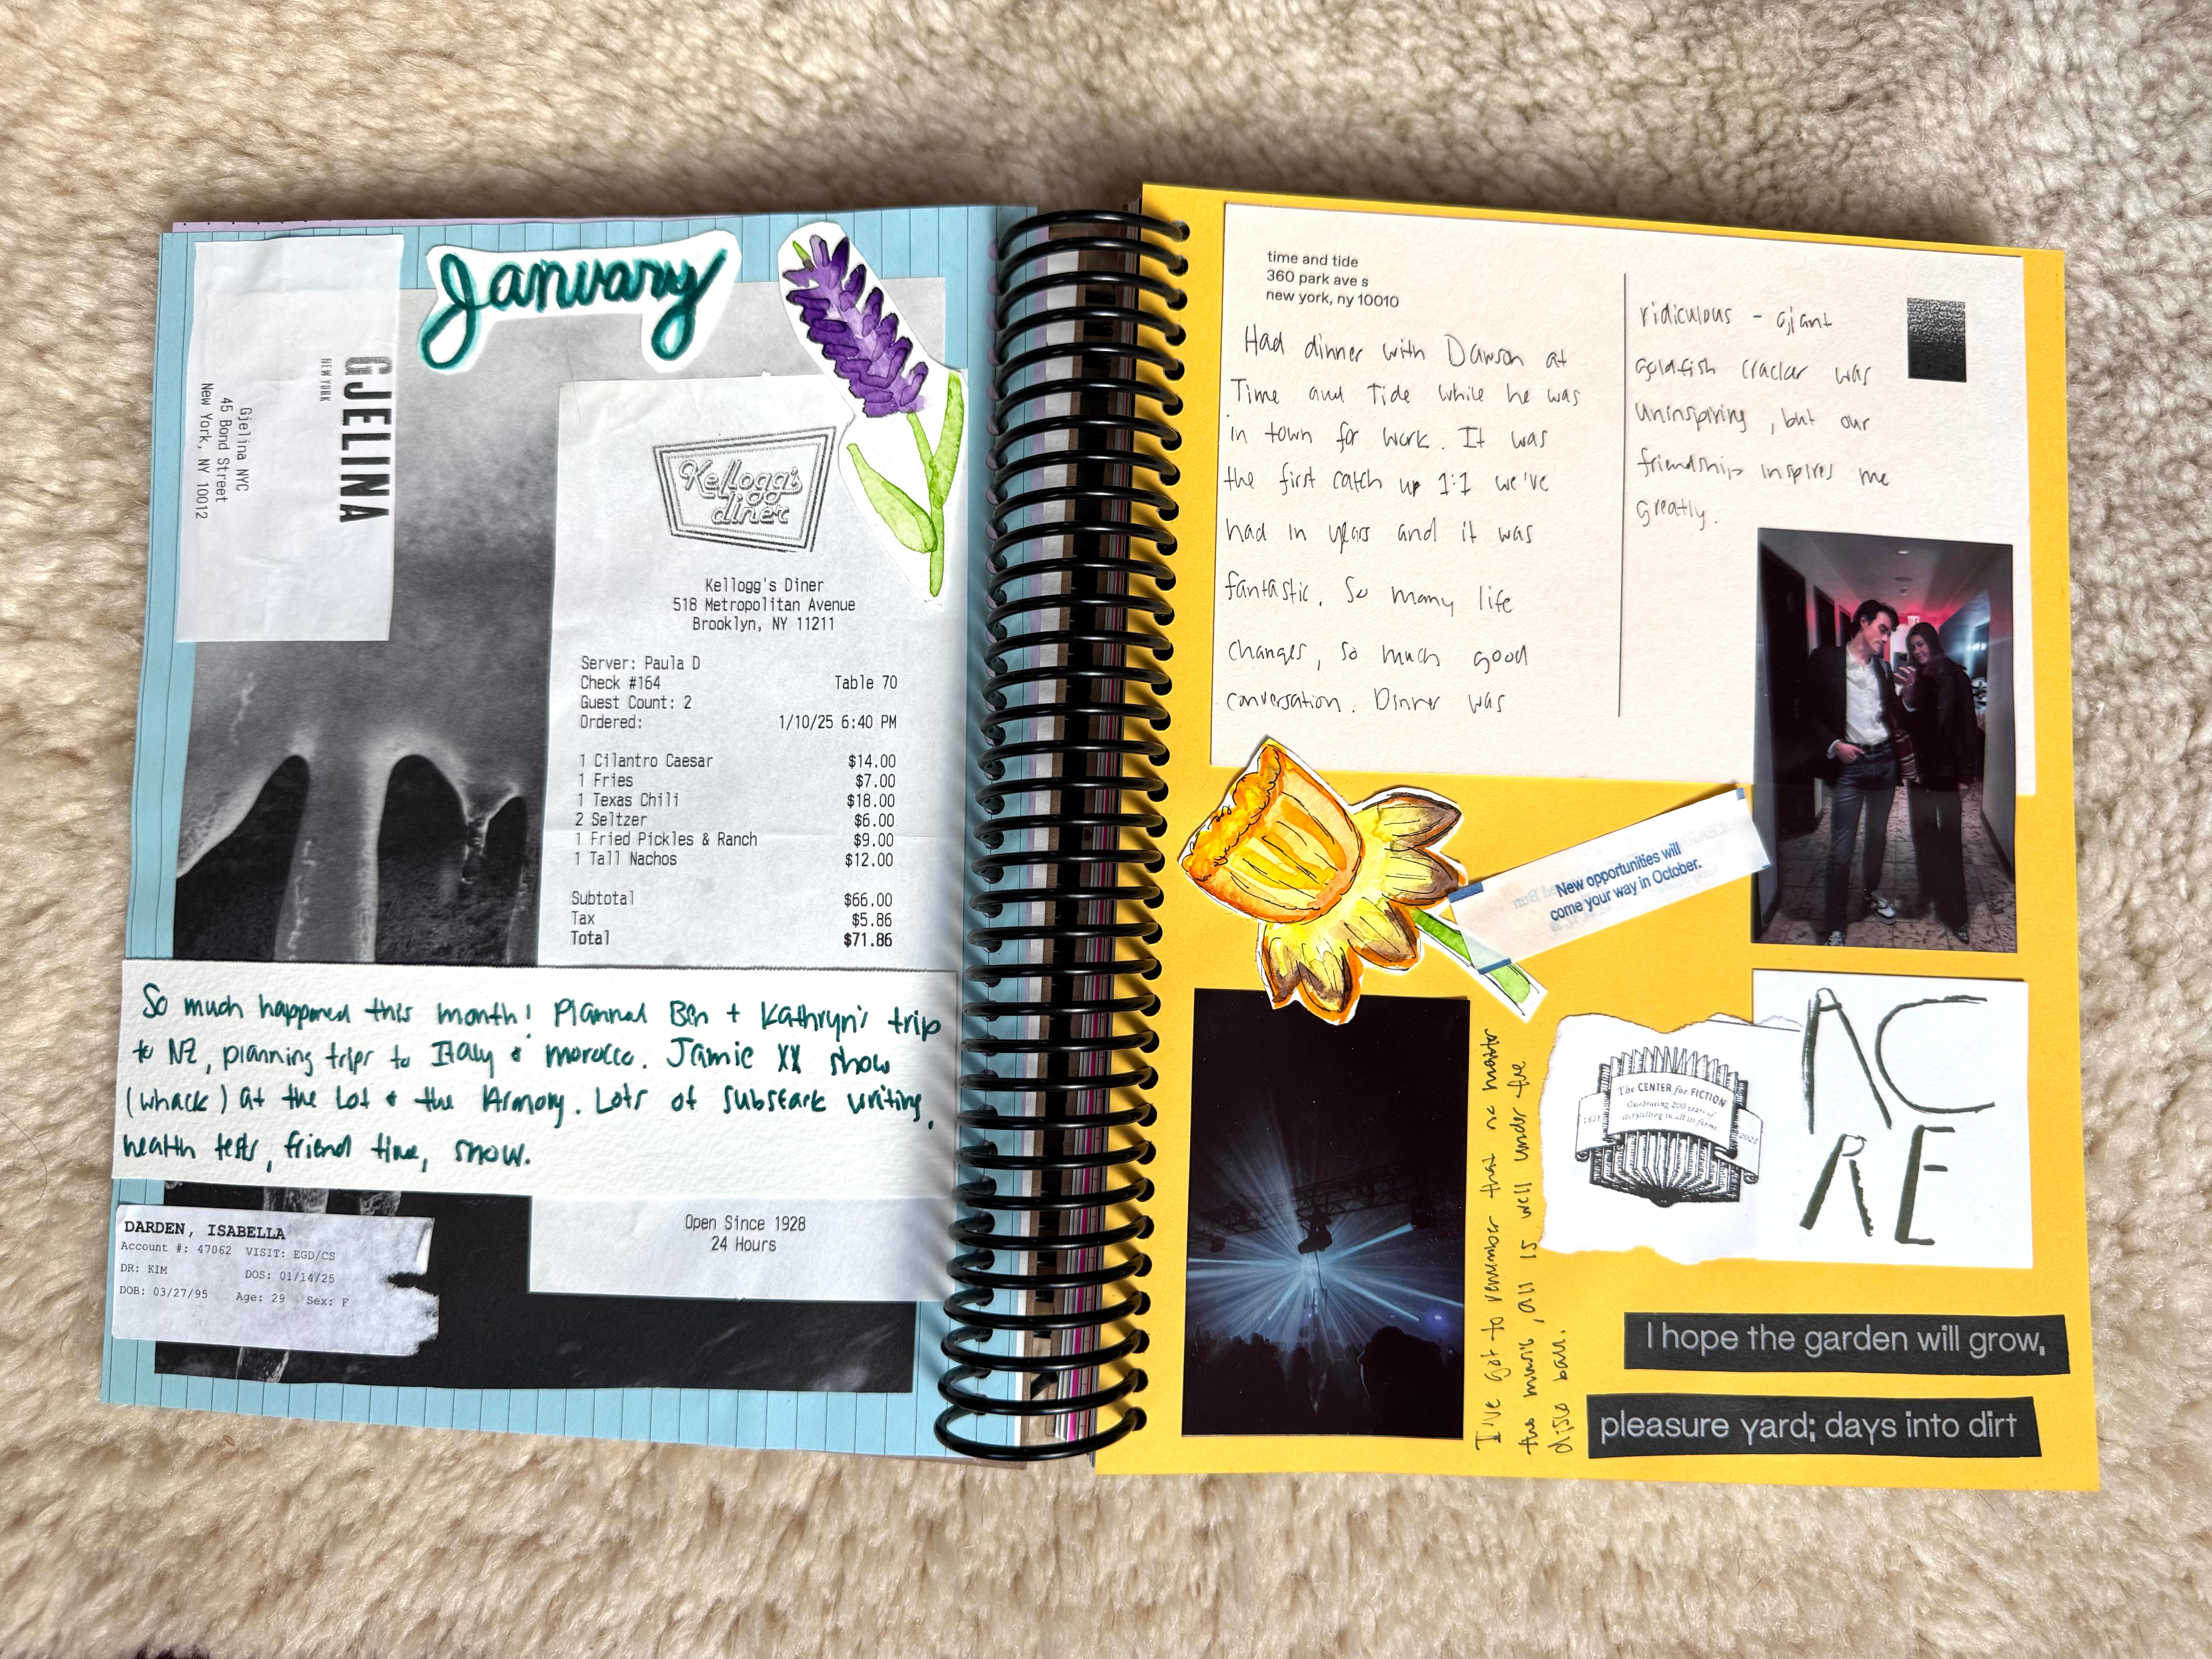 January
GJELINA
NEW YORK
Gjelina NYC
45 Bond Street
New York, NY 10012
Kellogg's
diner
Kellogg's Diner
518 Metropolitan Avenue
Brooklyn, NY 11211
Server: Paula D
Check #164 Table 70
Guest Count: 2
Ordered: 1/10/25 6:40 PM
1 Cilantro Caesar $14.00
1 Fries $7.00
1 Texas Chili $18.00
2 Seltzer $6.00
1 Fried Pickles & Ranch $9.00
1 Tall Nachos $12.00
Subtotal $66.00
Tax $5.86
Total $71.86
So much happened this month! Planned Ben + Kathryn's trip
to NZ, planning trips to Italy & morocco. Jamie XX show
(whack) at the Lot & the Armory. Lots of substack writing,
health tests, friend time, snow.
Open Since 1928
24 Hours
DARDEN, ISABELLA
Account #: 47062 VISIT: EGD/CS
DR: KIM DOS: 01/14/25
DOB: 03/27/95 Age: 29 Sex: F
time and tide
360 park ave s
new york, ny 10010
Had dinner with Dawson at
Time and Tide while he was
in town for work. It was
the first catch up 1:1 we've
had in years and it was
fantastic. So many life
changes, so much good
conversation. Dinner was
ridiculous - giant
goldfish cracker was
uninspiring, but our
friendship inspires me
greatly.
New opportunities will
come your way in October.
I've got to remember that no matter
the music, all is well under the
disco ball.
The CENTER for FICTION
Celebrating 200 years of
storytelling in all its forms
1821
2021
AC
RE
I hope the garden will grow,
pleasure yard; days into dirt